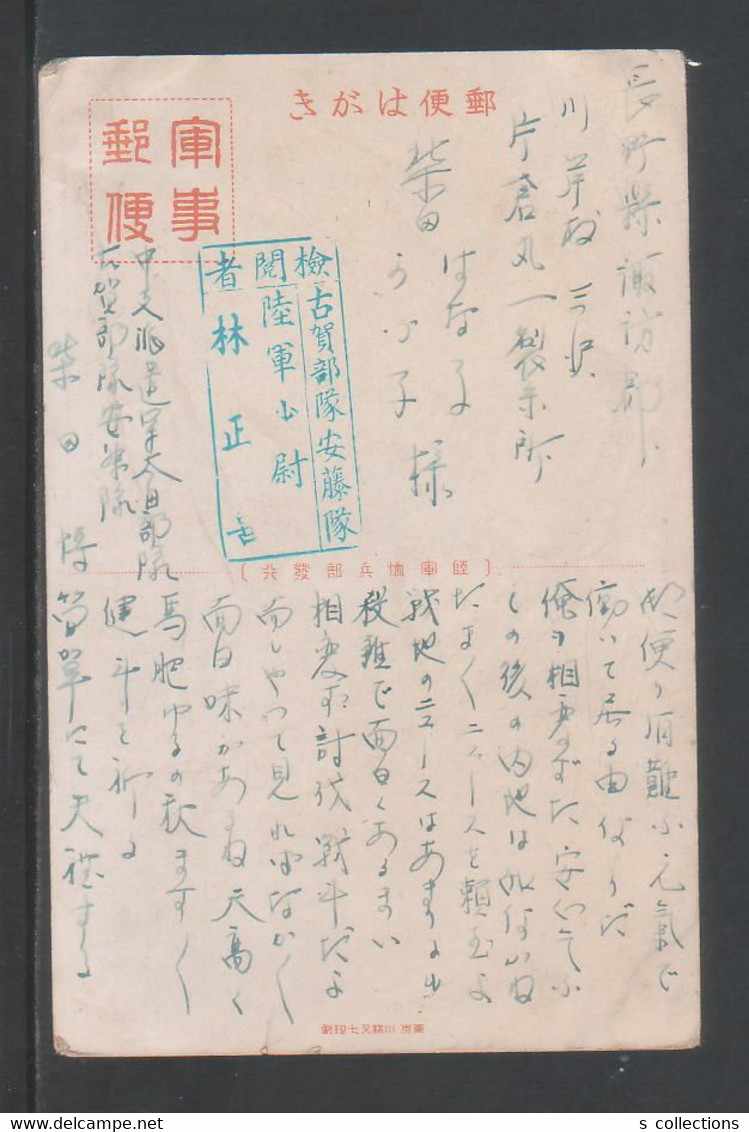 郵便はがき
軍事
郵便
長野縣諏訪郡
川岸村三沢
片倉丸一製糸所
柴田 はな子
様
檢閱者
古賀部隊安藤隊
陸軍少尉
林正
中支派遣軍太田部隊
古賀部隊安藤隊
柴田
〔陸軍恤兵部發行〕
郵便り有難ふ元氣で
働いて居る由なりだ
俺も相変らずだ安心して
その後の内地は
たまにニュースを頼むよ
戦地のニュースはあまりに
殺雜で面白くあるまい
相変らず討伐戦斗だよ
而しやつて見ればなかく
面白味があるね天高く
馬肥ゆるの秋ますく
健斗を祈る
にて失禮する
東京 川瀬
s collections